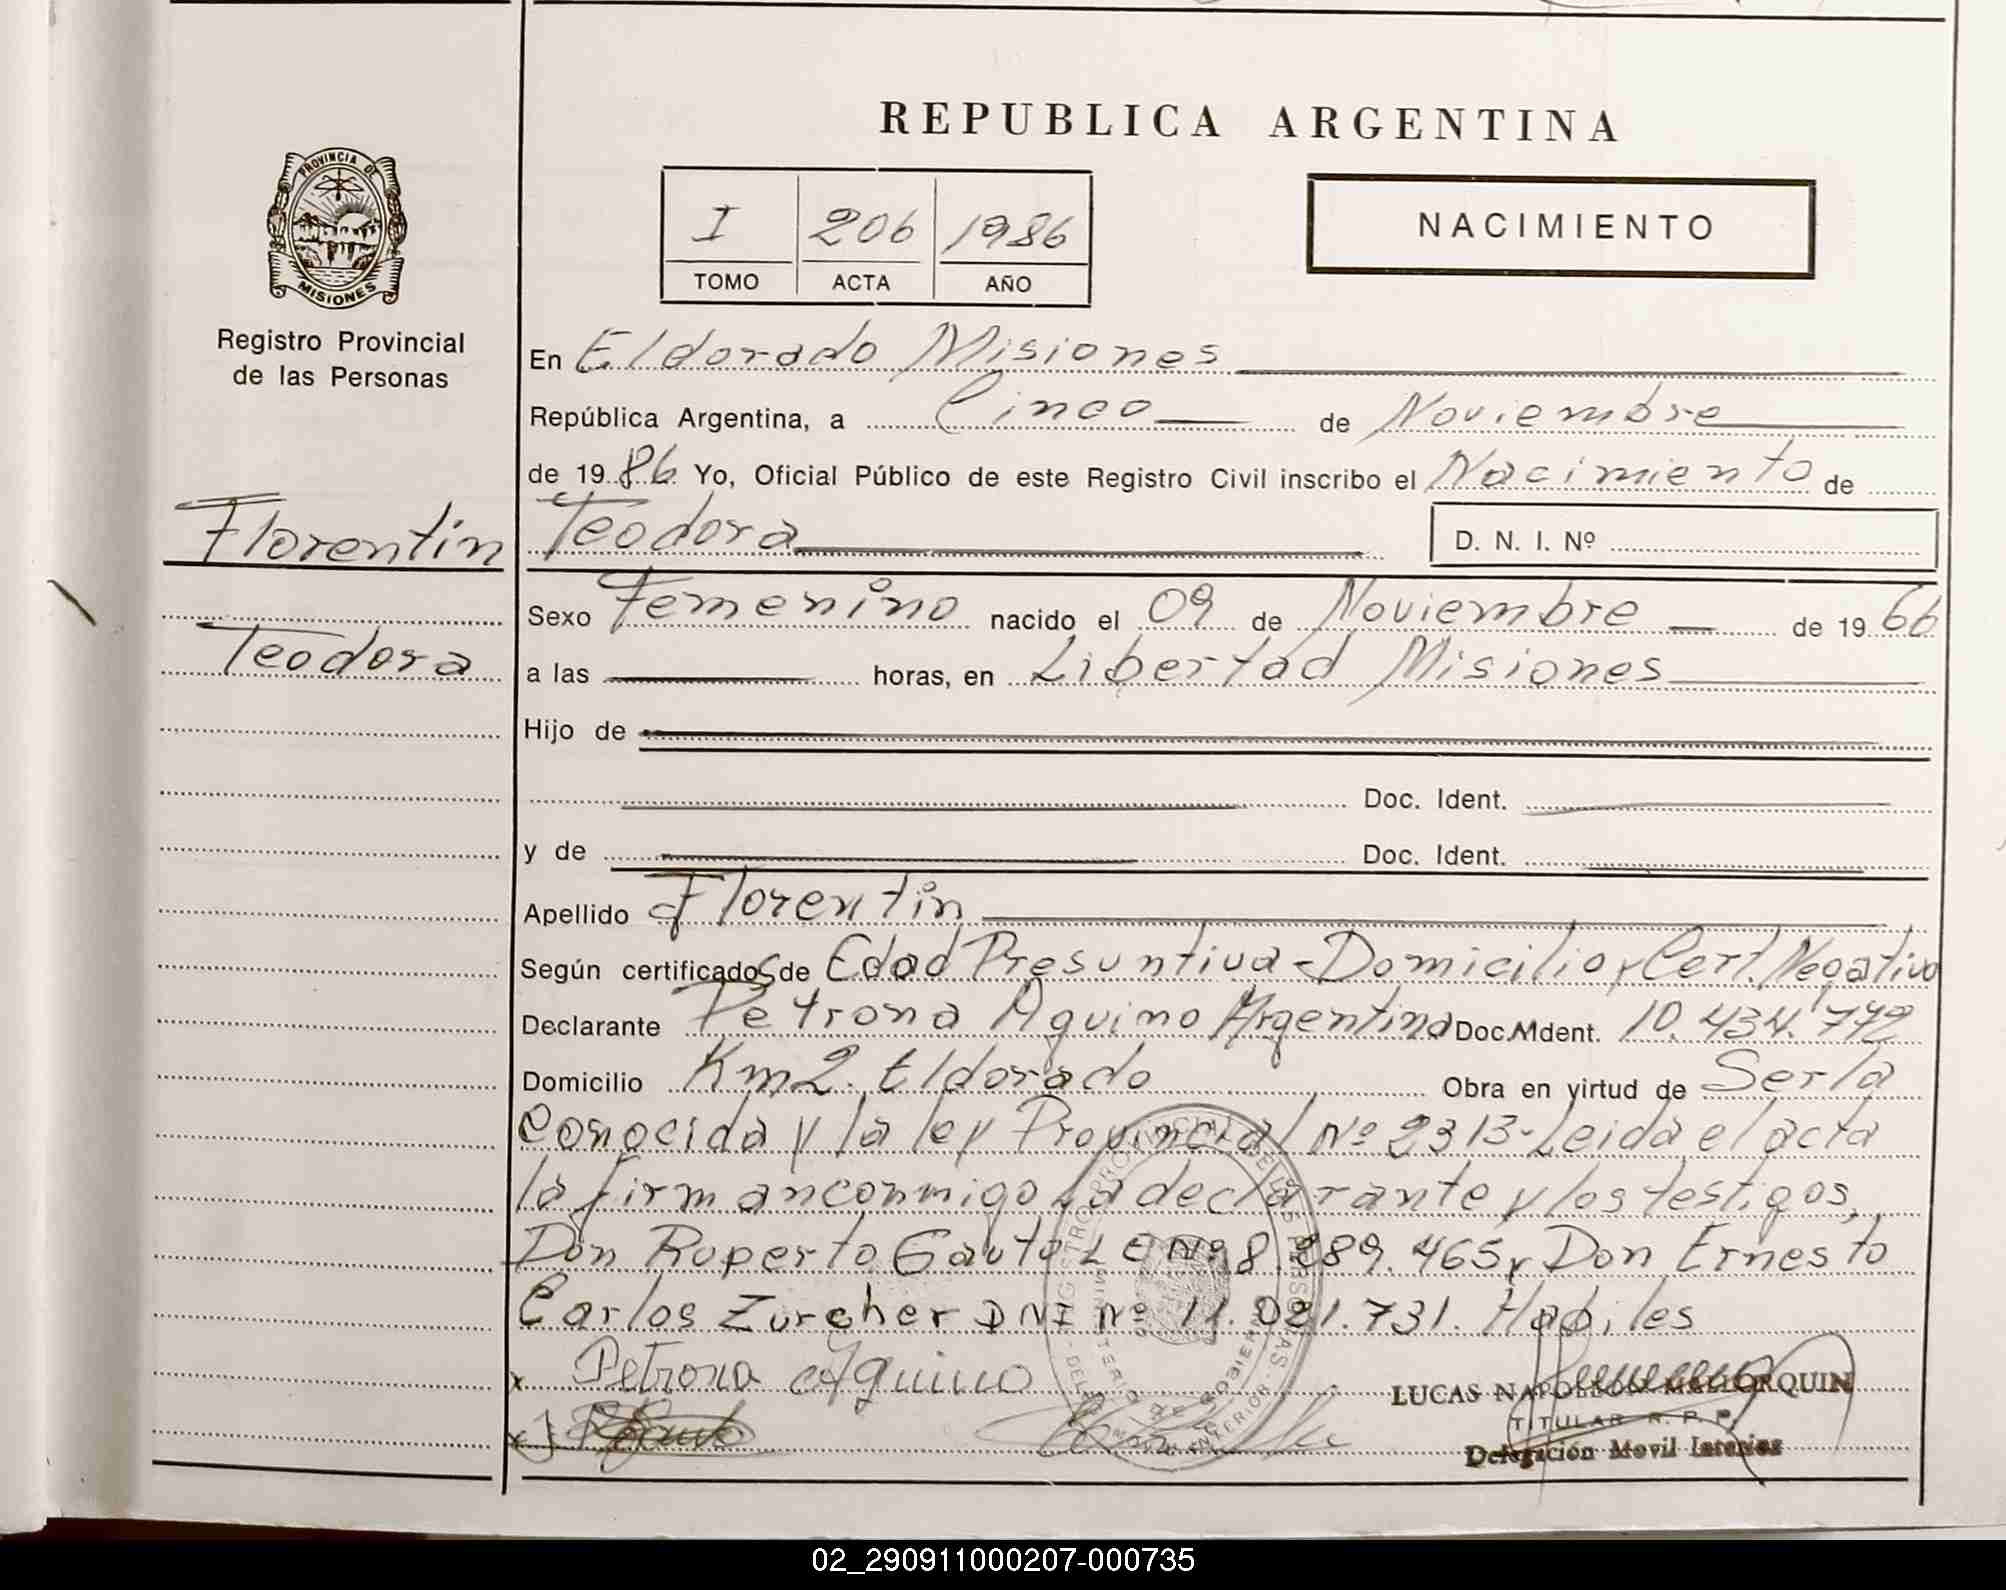 REPUBLICA ARGENTINA
PROVINCIA DE MISIONES
Registro Provincial
de las Personas
I 206 1986
TOMO ACTA AÑO
NACIMIENTO
En Eldorado Misiones
República Argentina, a Cinco de Noviembre
de 1986 Yo, Oficial Público de este Registro Civil inscribo el Nacimiento de
Florentin
Teodora
Teodora
D. N. I. Nº
Sexo Femenino nacido el 09 de Noviembre de 1966
a las horas, en Libertad Misiones
Hijo de
Doc. Ident.
y de Doc. Ident.
Apellido Florentin
Según certificados de Edad Presuntiva - Domicilio y Cert. Negativo
Declarante Petrona Aquino Argentina Doc. Ident. 10.434.772
Domicilio Km 2. Eldorado Obra en virtud de Ser la
Conocida y la ley Provincial Nº 2313 - Leida el acta
la firman conmigo la declarante y los testigos,
Don Ruperto Gauto L E Nº 8.289.465 y Don Ernesto
Carlos Zurcher DNI Nº 11.021.731. Habiles
x Petrona Aquino
LUCAS NAPOLEON MALLORQUIN
TITULAR R. P. P.
Delegación Movil Interior
02_290911000207-000735